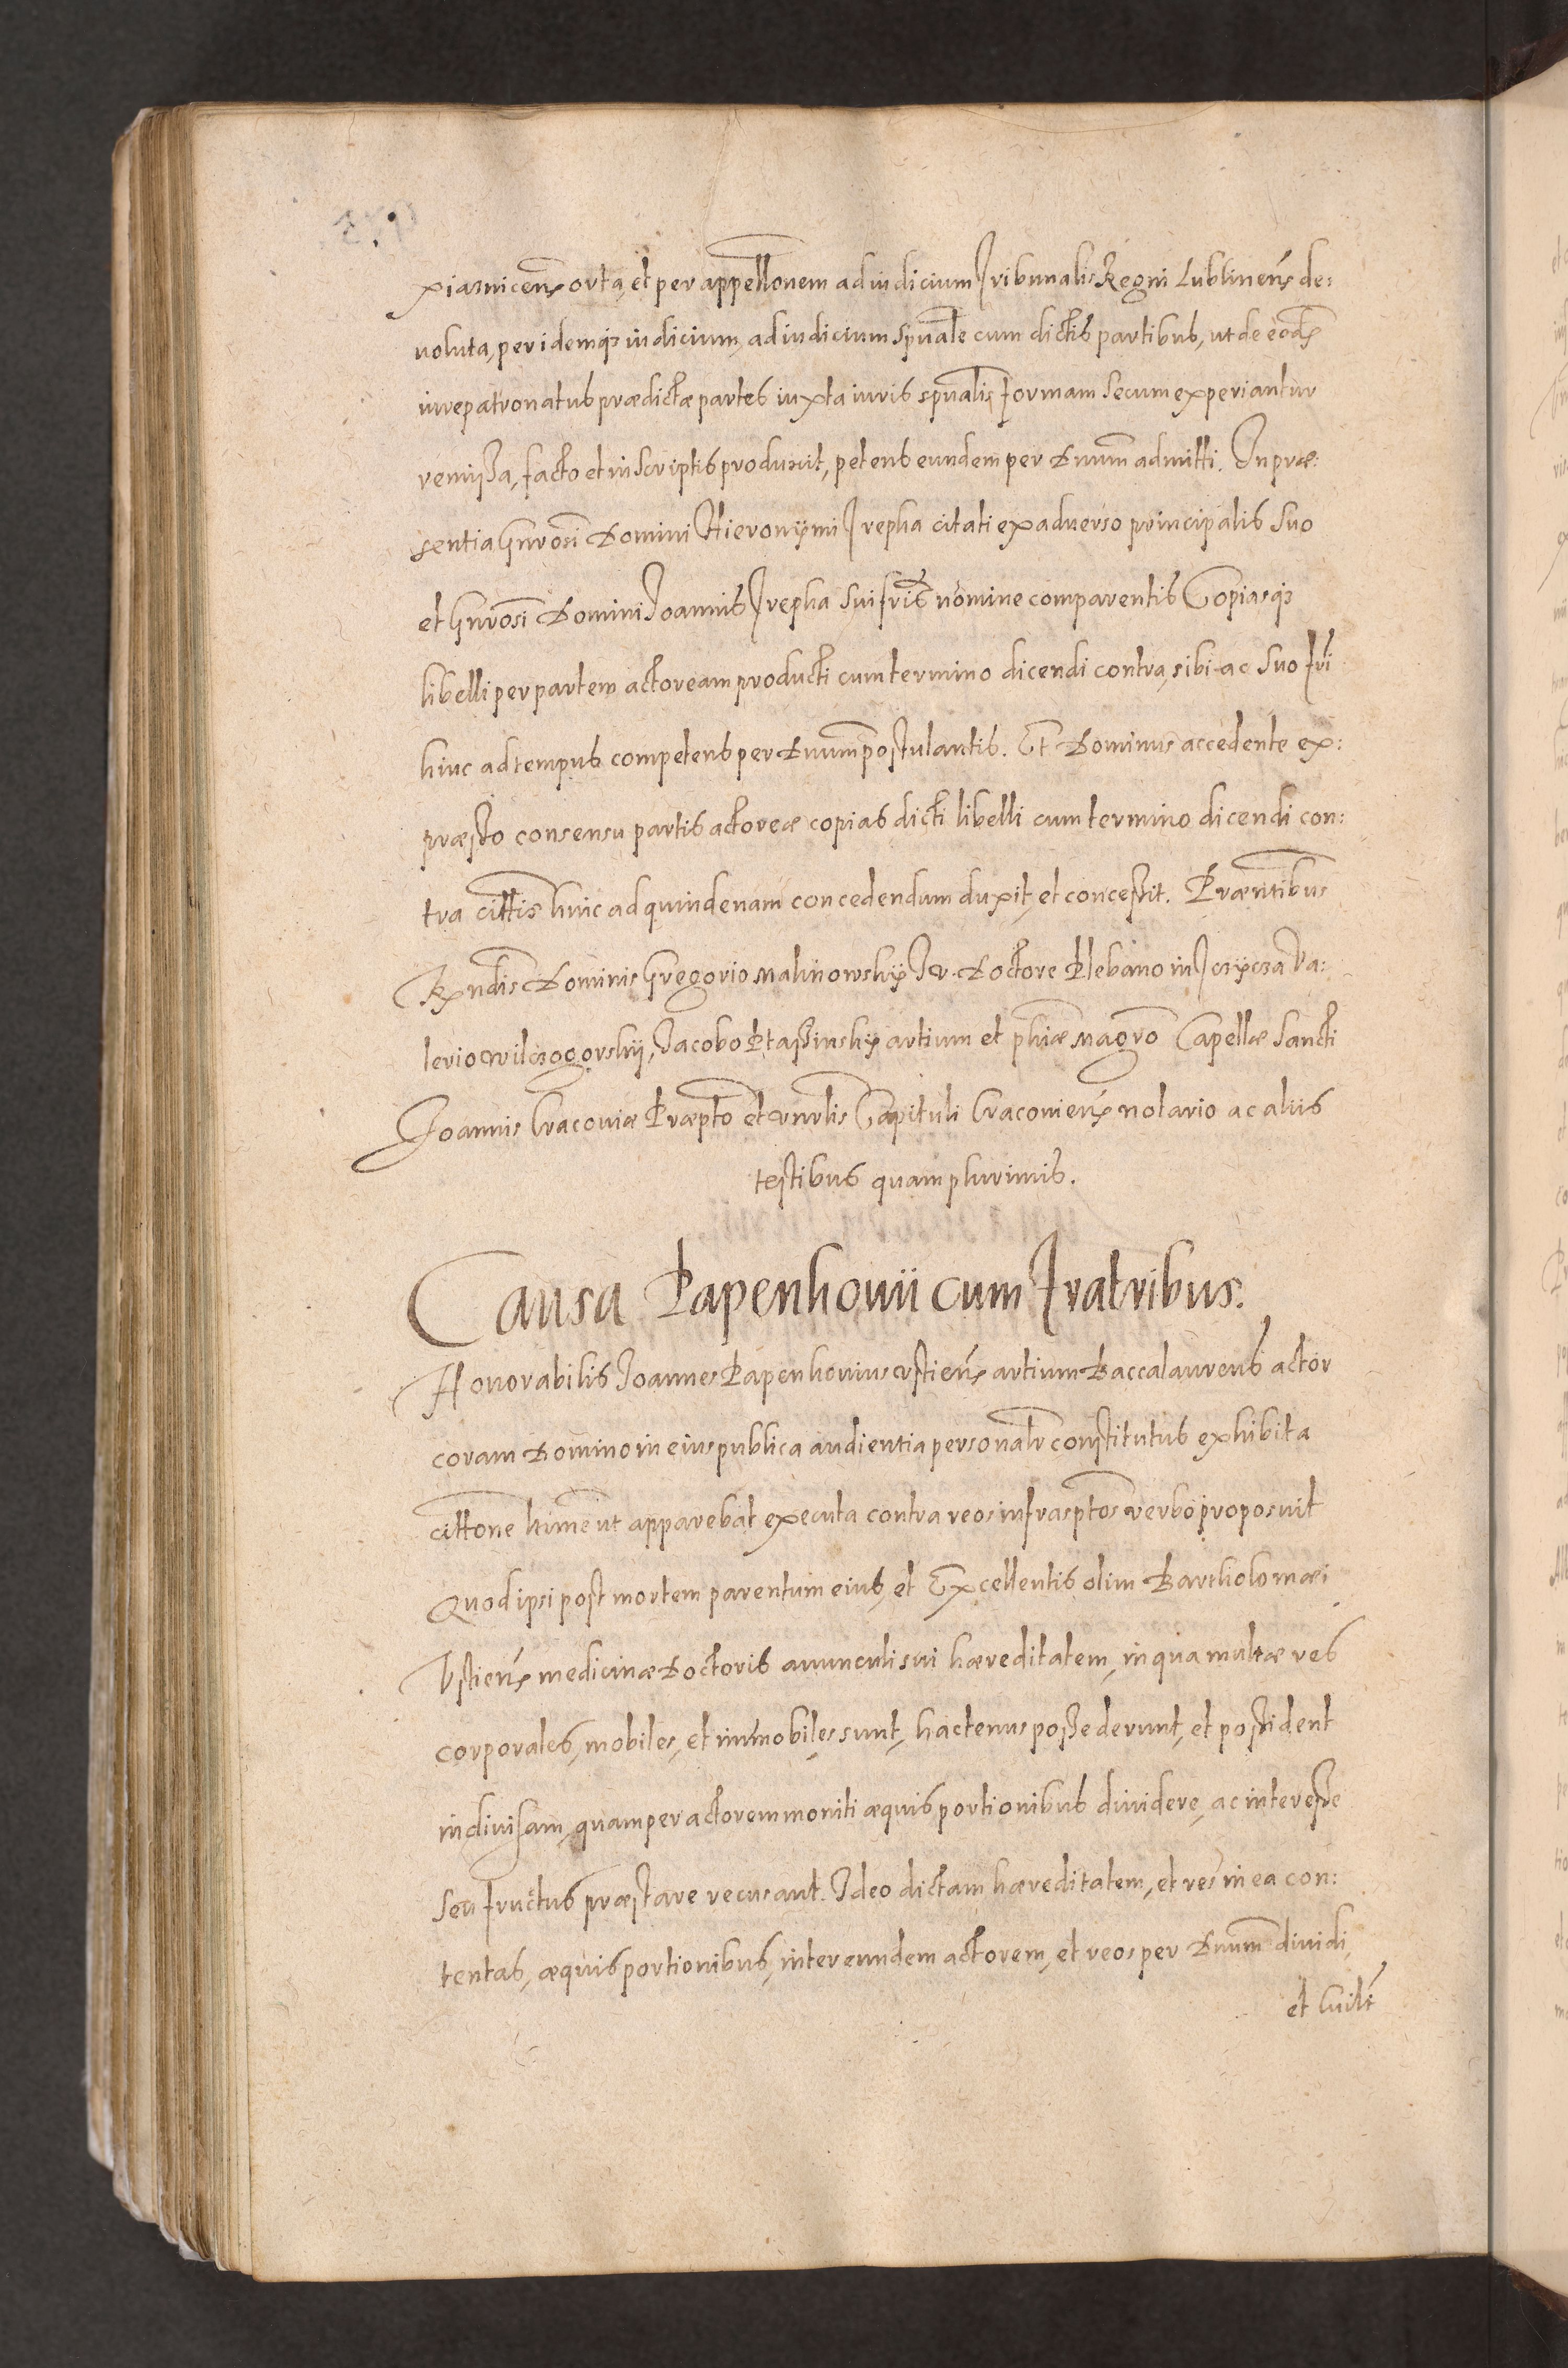 xiąznicens orta, et per appellonem ad iudicium Tribunalis Regni Lublinens de:
uoluta, per idemq3 iudicium, ad iudicium spuale cum dictis partibus, ut de eodē
iure patronatus prædictæ partes iuxta iuris spualis formam secum experiantur
remissa, facto et in scriptis produxit, petens eundem per Dnum admitti. In præ:
sentia Gnrosi Domini Hieronijmi Trepka citati ex aduerso principalis suo
et Gnrosi Domini Joannis Trepka sui fris nomine comparentis Copiasq3
libelli per partem actoream producti cum termino dicendi contra, sibi ac suo fri
hinc ad tempus competens per Dnum postulantis. Et Dominus accedente ex:
præsto consensu partis actoreæ copias dicti libelli cum termino dicendi con:
tra cittis hinc ad quindenam concedendum duxit, et concessit. Præntibus
Rndis Dominis Gregorio Malinowskij J.V. Doctore Plebano in Tczijcza Va:
lerio Wilczogorskij, Jacobo Ptassinskij artium et phiæ Magro Capellæ Sancti
Joannis Cracouiæ Præpto et Vnrlis Capituli Cracouiens notario ac aliis
testibus quam plurimis.
Causa Papenhouii cum Fratribus.
Honorabilis Joannes Papenhouius Vstiens artium Baccalaureus actor
coram Domino in eius publica audientia personalr constitutus exhibita
cittone ltime ut apparebat executa contra reos infrasptos verbo proposuit
Quod ipsi post mortem parentum eius, et Excellentis olim Bartholomæi
Vstiens medicinæ Doctoris auunculi sui hæreditatem, in qua multæ res
corporales, mobiles, et immobiles sunt, hactenus possederunt, et possident
indiuisam, quam per actorem moniti æquis portionibus diuidere, ac interesse
seu fructus præstare recusant. Ideo dictam hæreditatem, et res in ea con:
tentas, æquis portionibus, inter eundem actorem, et reos per Dnum diuidi,
et cuilt